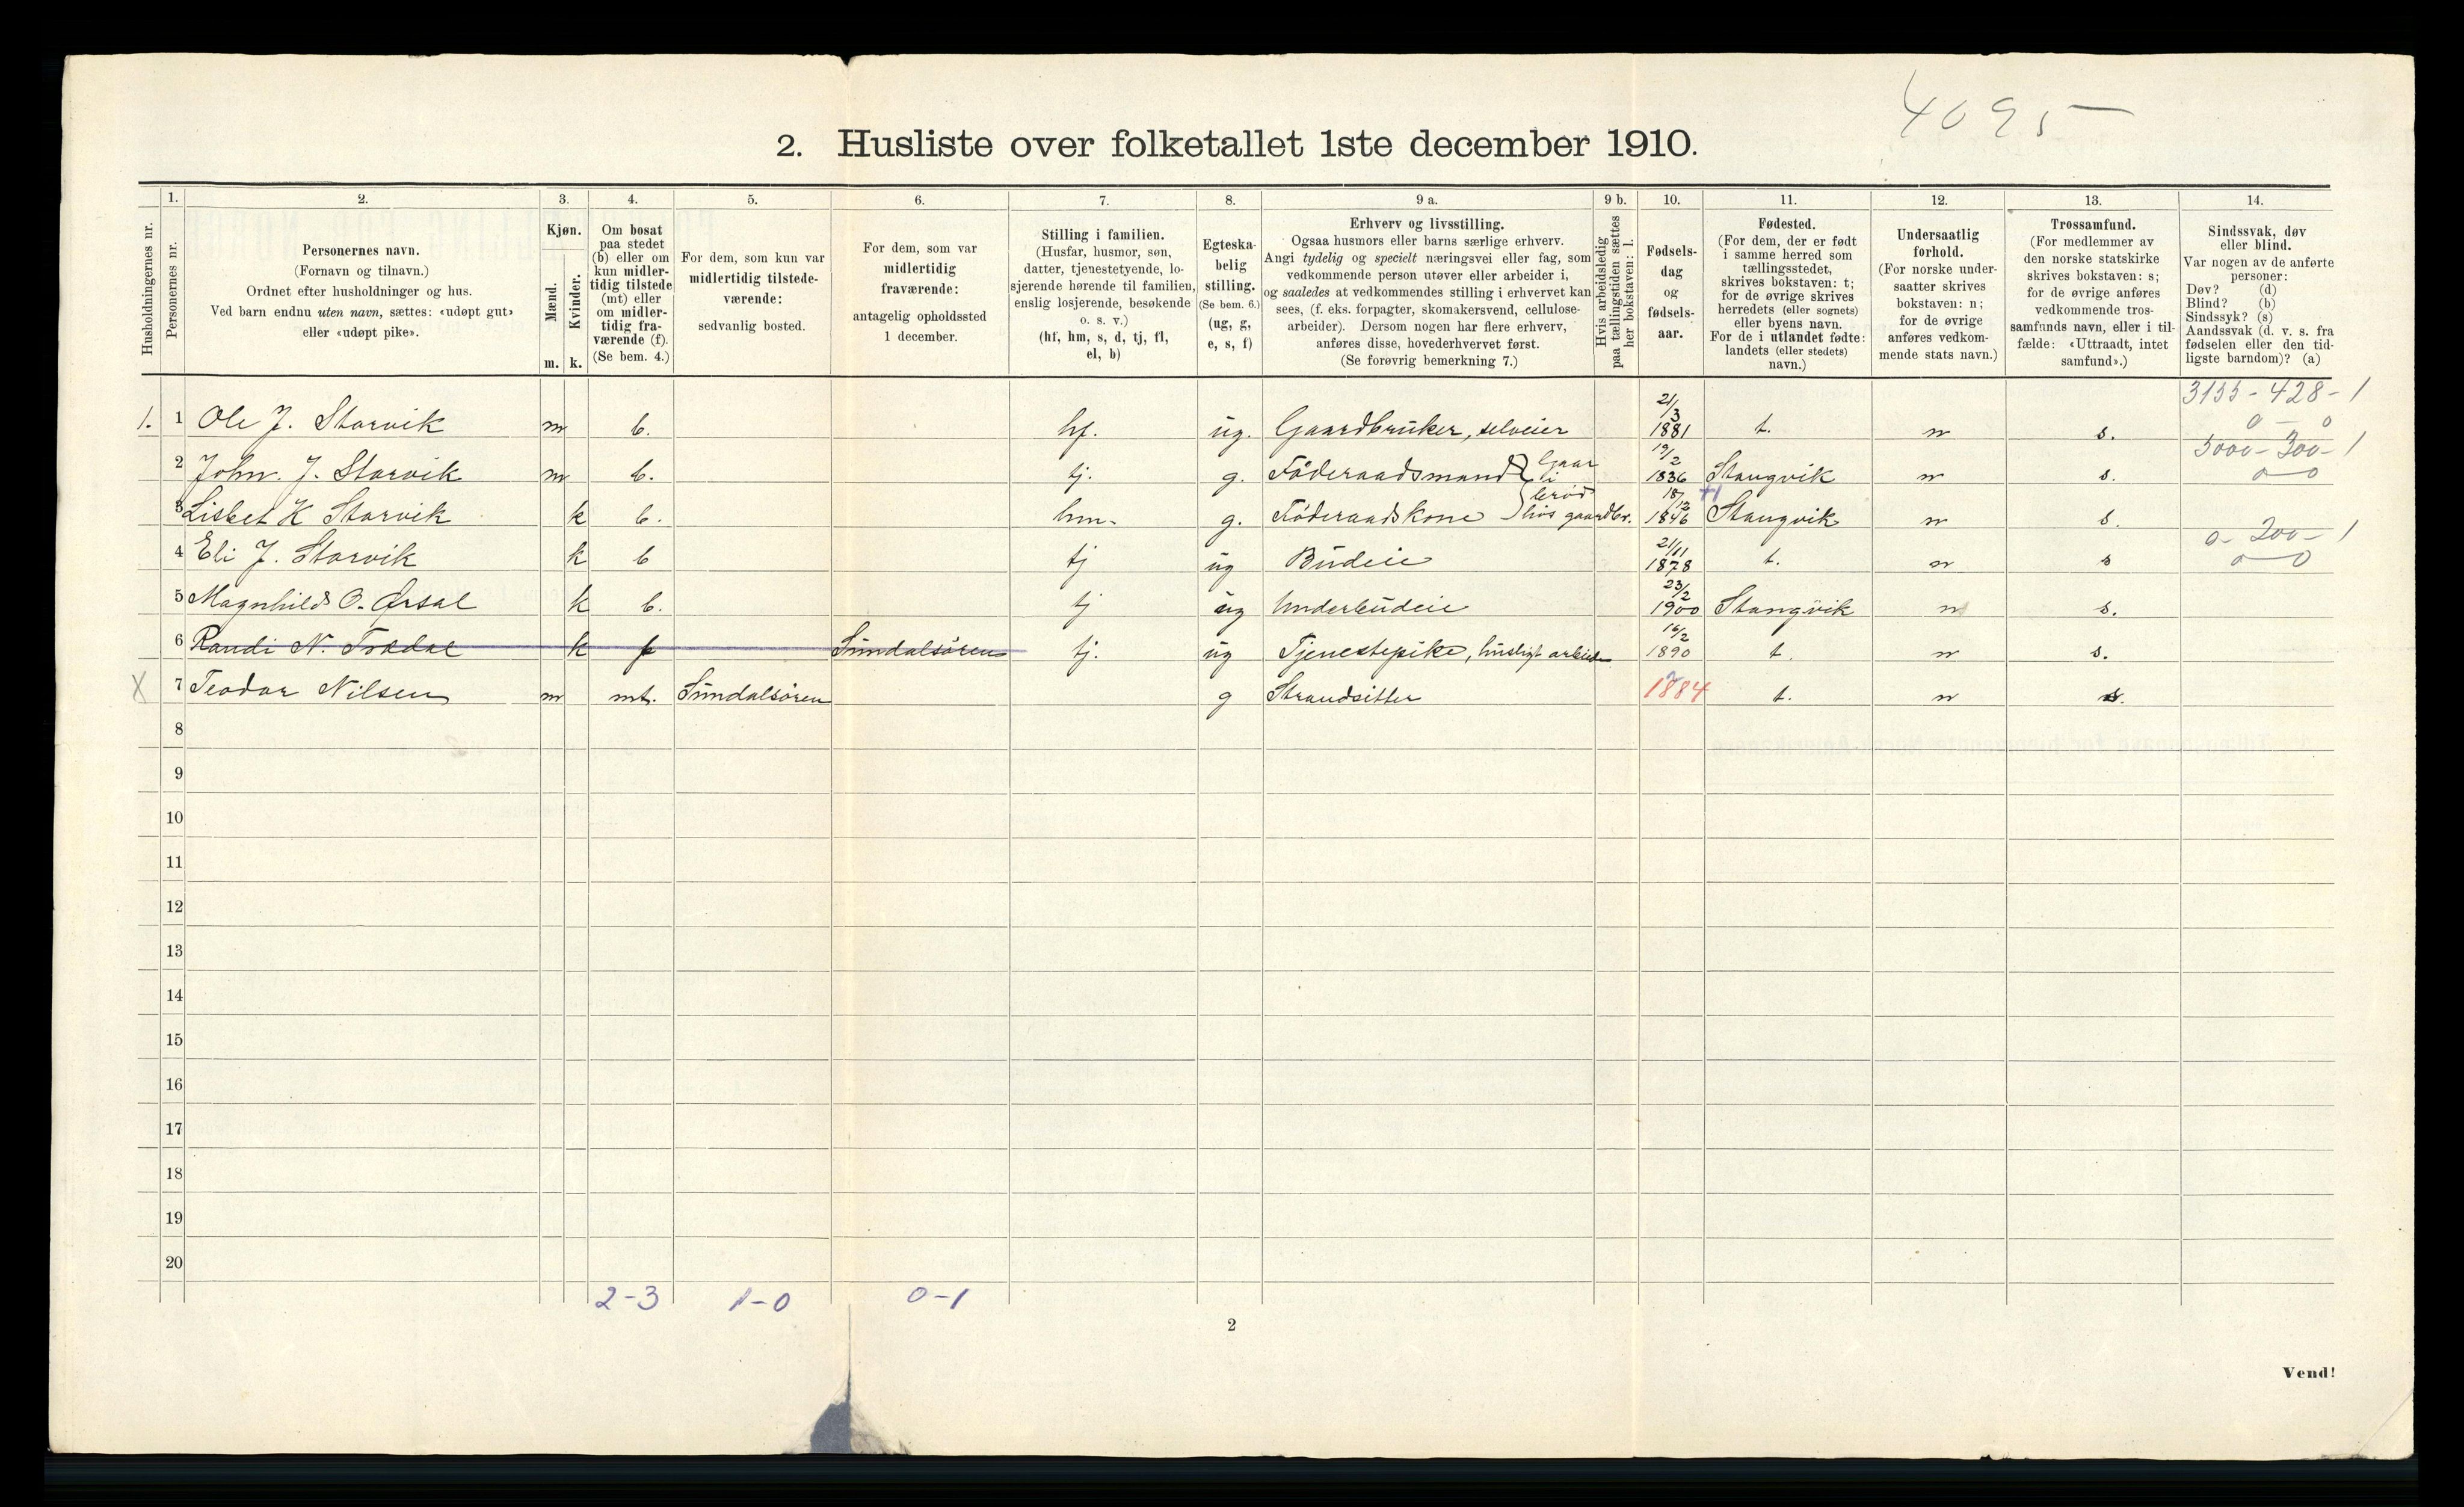 4095
2. Husliste over folketallet 1ste december 1910.
Husholdningernes nr.
1.
Personernes nr.
2.
Personernes navn.
(Fornavn og tilnavn.)
Ordnet efter husholdninger og hus.
Ved barn endnu uten navn, sættes: «udøpt gut»
eller «udøpt pike».
3.
Kjøn.
Mænd.
Kvinder.
m. k.
4.
Om bosat
paa stedet
(b) eller om
kun midler-
tidig tilstede
(mt) eller
om midler-
tidig fra-
værende (f).
(Se bem. 4.)
5.
For dem, som kun var
midlertidig tilstede-
værende:
sedvanlig bosted.
6.
For dem, som var
midlertidig
fraværende:
antagelig opholdssted
1 december.
7.
Stilling i familien.
(Husfar, husmor, søn,
datter, tjenestetyende, lo-
sjerende hørende til familien,
enslig losjerende, besøkende
o. s. v.)
(hf, hm, s, d, tj, fl,
el, b)
8.
Egteska-
belig
stilling.
(Se bem. 6.)
(ug, g,
e, s, f)
9 a.
Erhverv og livsstilling.
Ogsaa husmors eller barns særlige erhverv.
Angi tydelig og specielt næringsvei eller fag, som
vedkommende person utøver eller arbeider i,
og saaledes at vedkommendes stilling i erhvervet kan
sees, (f. eks. forpagter, skomakersvend, cellulose-
arbeider). Dersom nogen har flere erhverv,
anføres disse, hovederhvervet først.
(Se forøvrig bemerkning 7.)
9 b.
Hvis arbeidsledig
paa tællingstiden sættes
her bokstaven: l.
10.
Fødsels-
dag
og
fødsels-
aar.
11.
Fødested.
(For dem, der er født
i samme herred som
tællingsstedet,
skrives bokstaven: t;
for de øvrige skrives
herredets (eller sognets)
eller byens navn.
For de i utlandet fødte:
landets (eller stedets)
navn.)
12.
Undersaatlig
forhold.
(For norske under-
saatter skrives
bokstaven: n;
for de øvrige
anføres vedkom-
mende stats navn.)
13.
Trossamfund.
(For medlemmer av
den norske statskirke
skrives bokstaven: s;
for de øvrige anføres
vedkommende tros-
samfunds navn, eller i til-
fælde: «Uttraadt, intet
samfund».)
14.
Sindssvak, døv
eller blind.
Var nogen av de anførte
personer:
Døv? (d)
Blind? (b)
Sindssyk? (s)
Aandssvak (d. v. s. fra
fødselen eller den tid-
ligste barndom)? (a)
3155-428-1
0 - 0
1. 1 Ole J. Storvik m b. hf. ug. Gaardbruker, selveier 21/3 1881 t. n s.
3000-300-1
0 - 0
2 John. J. Storvik m b. tj. g. Föderaadsmand 19/2 1836 Stangvik n s.
3 Lisbet K Storvik k b. hm. g. Föderaadskone hos gaardbr. 18/12 1846 Stangvik n s.
0-200-1
0 - 0
4 Eli J. Storvik k b tj ug Budeie 21/11 1878 t. n s
5 Magnhild O. Ørsal k b. tj ug Underbudeie 23/2 1900 Stangvik n s.
6 Randi N. Trædal k f Sundalsören tj. ug Tjenestepike, husligt arbeide 16/2 1890 t. n s.
X 7 Teodor Nilsen m mt. Sundalsören g Strandsitter 1884 t. n s.
8
9
10
11
12
13
14
15
16
17
18
19
20
2-3 1-0 0-1
2
Vend!